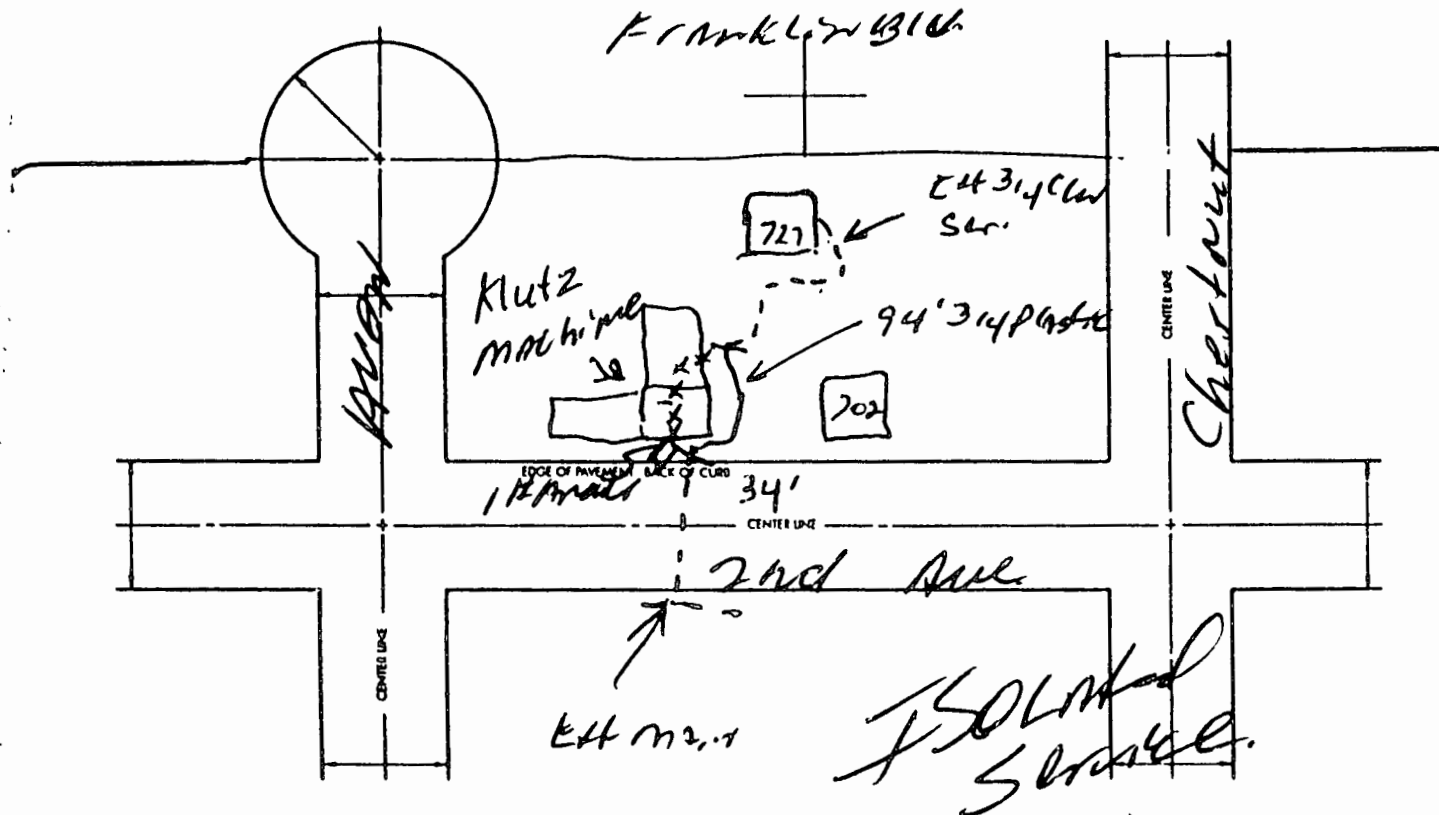 Franklin Blvd.
727
Ext 3/4 CLW
Ser.
Klutz
Machine
94' 3/4 Plastic
702
Avon
Chestnut
CENTER LINE
EDGE OF PAVEMENT BACK OF CURB
34'
CENTER LINE
2nd Ave.
CENTER LINE
Ext Main
ISOLATED
Service.